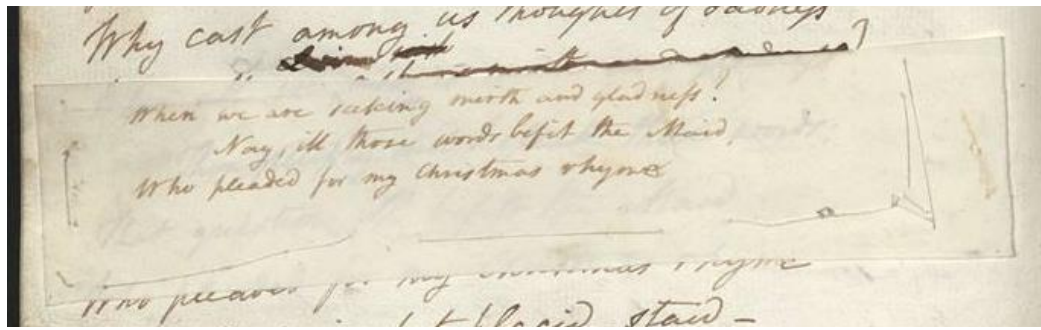 Why cast among us thoughts of sadness
When we are seeking mirth and gladness?
Nay, ill those words befit the Maid,
Who pleaded for my Christmas rhyme
Who pleaded for my Christmas rhyme
placid, staid –